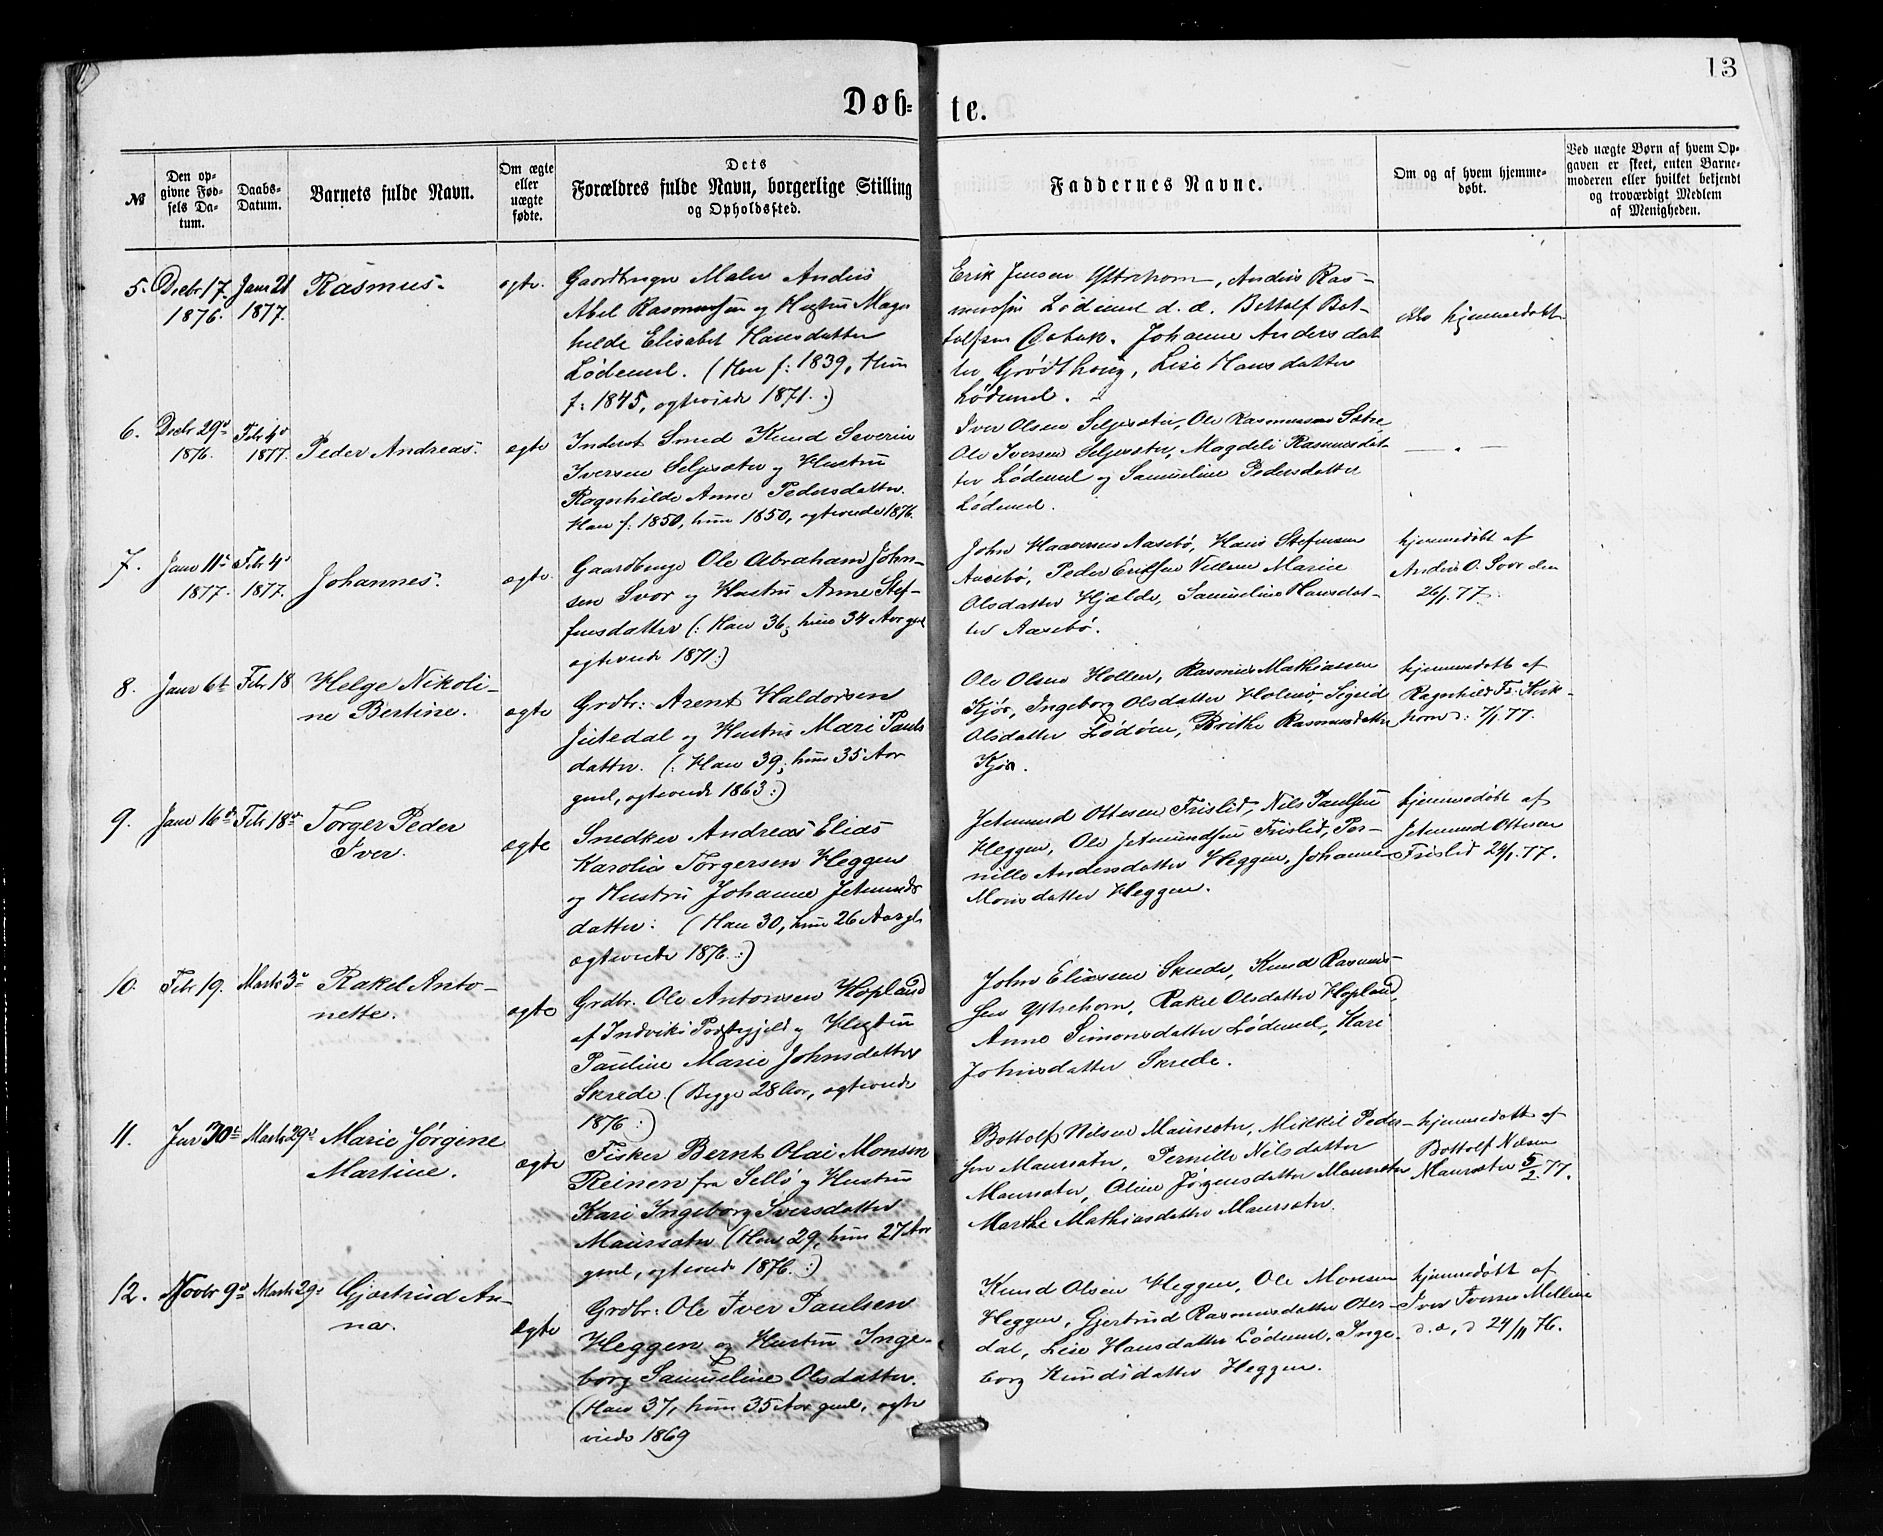 13
Døb- te.
№
Den op-
givne Fød-
sels Da-
tum.
Daabs-
Datum.
Barnets fulde Navn.
Om ægte
eller
uægte
fødte.
Dets
Forældres fulde Navn, borgerlige Stilling
og Opholdssted.
Faddernes Navne.
Om og af hvem hjemme-
døbt.
Ved uægte Børn af hvem Op-
gaven er skeet, enten Barne-
moderen eller hvilket bekjendt
og troværdigt Medlem
af Menigheden.
5. Decbr 17. 1876.
Janr 21 1877.
Rasmus.
ægte.
Gaardbruger Maler Anders
Abel Rasmussen og Hustru Mag-
hilde Elisabet Hansdatter
Lødemel. (Han f: 1839, Hun
f: 1845, ægteviede 1871.)
Erik Jensen Yttrehorn, Anders Ras-
mussen Lødemel d. æ. Bottolf Bot-
tolfsen Johanne Andersdat-
ter Grødthoug, Lise Hansdatter
Lødemel.
ikke hjemmedøbt
6. Decbr 29d 1876.
Febr 4d 1877.
Peder Andreas.
ægte
Inderst Smed Knud Severin
Iversen Seljesæter og Hustru
Ragnhilde Anne Pedersdatter.
Han f: 1850, hun 1850, ægteviede 1876.
Iver Olsen Seljesæter, Ole Rasmussen Sætre,
Ole Iversen Seljesæter, Magdeli Rasmusdat-
ter Lødemel og Samueline Pedersdatter
Lødemel.
— " —
7. Janr 11te 1877.
Febr 4d 1877.
Johannes.
ægte.
Gaardbruger Ole Abraham John-
sen Svor og Hustru Anne Stef-
fensdatter (: Han 36, hun 34 Aar gml
ægteviede 1871:)
John Haaversen Aasebø, Hans Stefensen
Aasebø, Peder Eriksen Marie
Olsdatter Hjælde, Samueline Hansdat-
ter Aasebø.
hjemmedøbt af
Anders O. Svor den
26/1. 77.
8. Janr 6t
Febr 18
Helge Nikoli-
ne Bertine.
ægte
Grdbr: Arent Haldorsen
Jutedal og Hustru Mari Pauls
datter. (: Han 39, hun 35 Aar
gml, ægteviede 1863:)
Ole Olsen Hollen, Rasmus Mathiassen
Kjøs, Ingeborg Olsdatter Holmø, Sigrid
Olsdatter Lødøen, Brithe Rasmusdatter
Kjøs.
hjemmedøbt af
Ragnhild Fr: Kirk-
horn d: 7/1 77.
9. Janr 16d
Febr 18de
Torger Peder
Iver.
ægte
Snedker Andreas Elias
Karolius Torgersen Heggen
og Hustru Johanne Jetmunds
datter: (Han 30, hun 26 Aar gl.
ægteviede 1876.:)
Jetmund Ottesen Frislid, Nils Paulsen
Heggen, Ole Jetmundsen Frislid, Per-
nille Andersdatter Heggen, Johanne
Monsdatter Heggen.
hjemmedøbt af
Jetmund Ottesen
Frislid 24/1. 77.
10. Febr 19.
Marts 3d
Rakel Anto-
nette.
ægte
Grdbr. Ole Antonsen Hopland
af Indviks Præstegjeld og Hustru
Pauline Marie Johnsdatter
Skrede (Begge 28 Aar, ægteviede
1876:)
John Eliassen Skrede, Knud Rasmus-
sen Yttrehorn, Rakel Olsdatter Hopland,
Anne Simonsdatter Lødemel, Kari
Johnsdatter Skrede.
11. Jar 30te
Marts 29d
Marie Jørgine
Martine.
ægte
Fisker Bernt Olai Monsen
Reinen fra Sellø og Hustru
Kari Ingeborg Iversdatter
Maursæter (Han 29, hun 27 Aar
gml, ægteviede 1876.:)
Bottolf Nilsen Maursæter, Mikkel Peder-
sen Maursæter, Pernille Nilsdatter
Maursæter, Oline Jørgensdatter Maursæter
Marthe Mathiasdatter Maursæter.
hjemmedøbt af
Bottolf Nilsen
Maursæter 5/2. 77.
12. Novbr 9d
Marts 29d
Gjertrud An-
na.
ægte
Grdbr: Ole Iver Paulsen
Heggen og Hustru Inge-
borg Samueline Olsdatter.
(Han 37, hun 35 Aar gml, ægte
viede 1869
Knud Olsen Heggen, Ole Monsen
Heggen, Gjertrud Rasmusdatter Over-
dal, Lise Hansdatter Lødemel, Inge-
borg Knudsdatter Heggen.
hjemmedøbt af
Iver Iversen
d. æ, d 24/11 76.